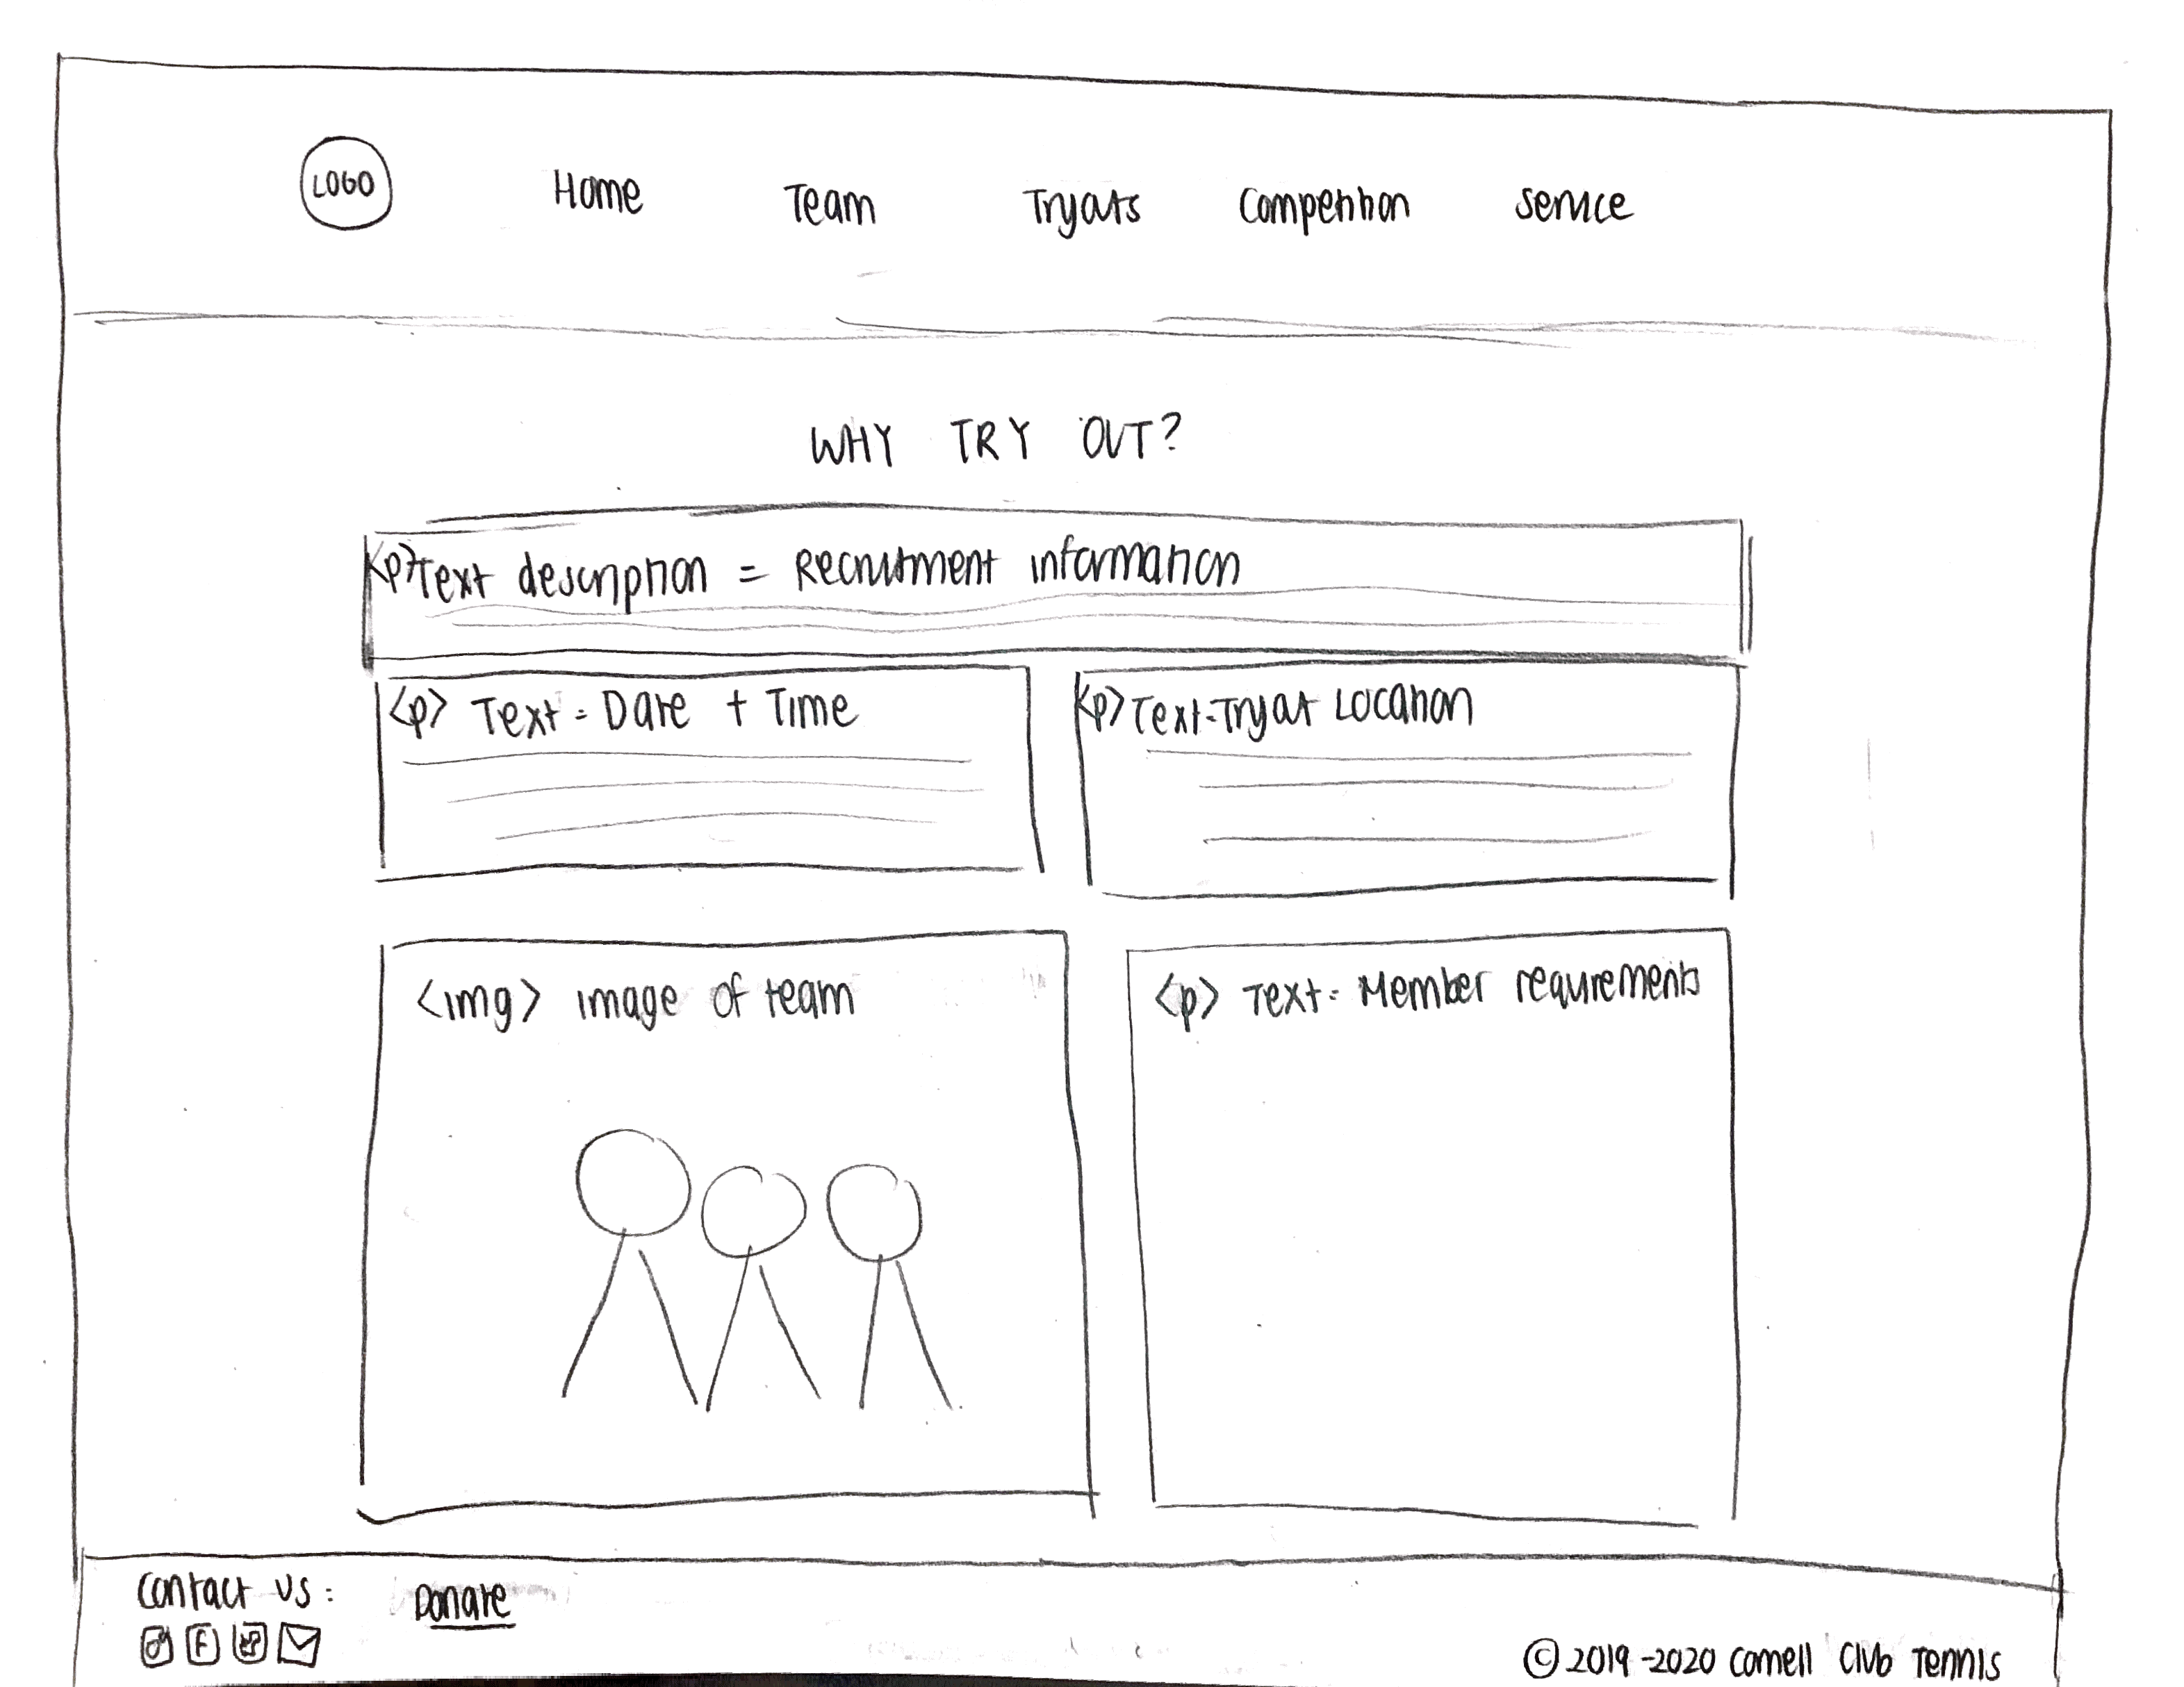 LOGO Home Team Tryouts Competition Service
WHY TRY OUT?
<p> Text description = Recruitment information
<p> Text = Date + Time <p> Text = Tryout Location
<img> image of team <p> Text = Member requirements
Contact Us: Donate
F
© 2019-2020 Cornell Club Tennis